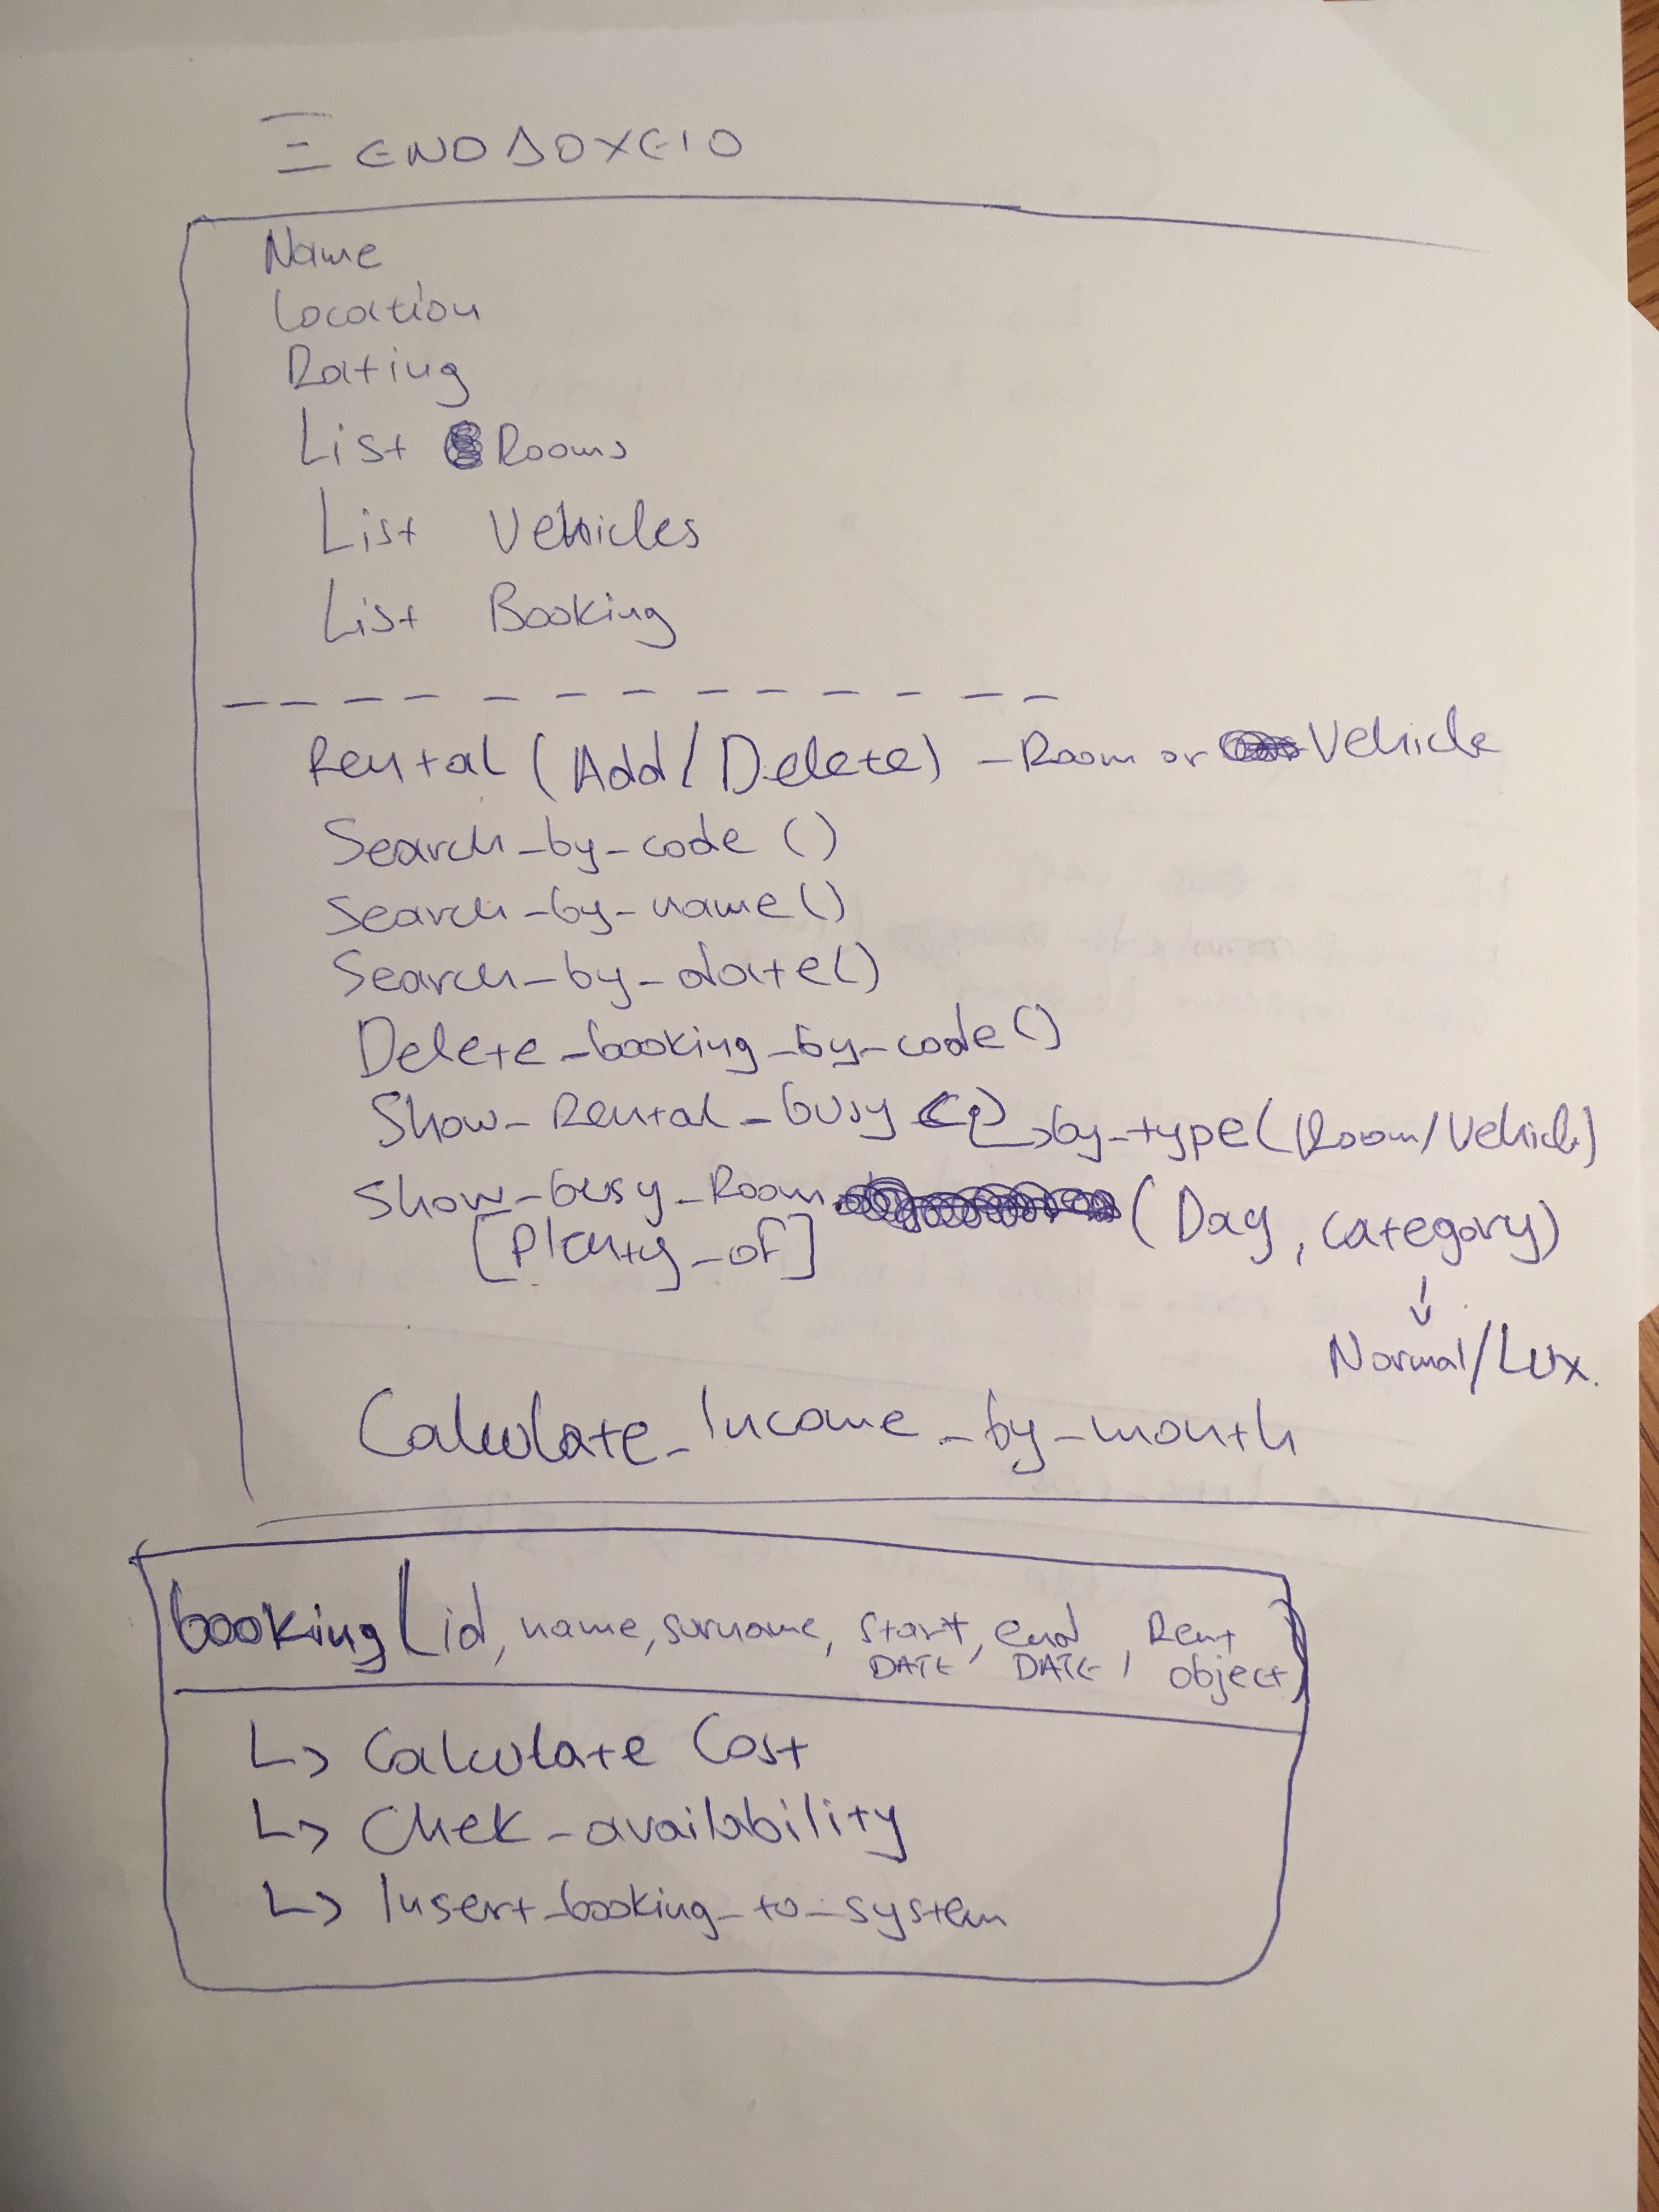 ΞΕΝΟΔΟΧΕΙΟ
Name
Location
Rating
List Rooms
List Vehicles
List Booking
Rental (Add/Delete) - Room or Vehicle
Search-by-code ()
Search-by-name ()
Search-by-date ()
Delete-booking-by-code ()
Show-Rental-busy by-type (Room/Vehicle)
Show-busy-Room (Day, category)
[Plenty-of]
Normal/Lux.
Calculate-Income-by-month
booking (id, name, surname, start DATE, end DATE, Rent object)
↳ Calculate Cost
↳ Chek-availability
↳ Insert-booking-to-system